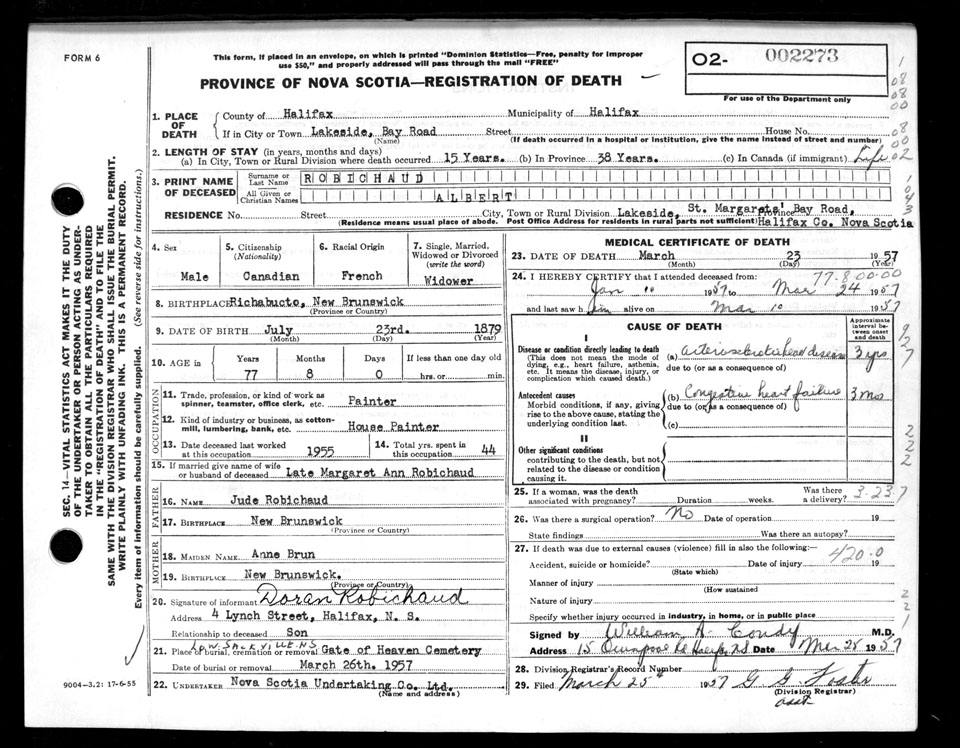 FORM 6
This form, if placed in an envelope, on which is printed "Dominion Statistics—Free, penalty for improper
use $50," and properly addressed will pass through the mail "FREE"
PROVINCE OF NOVA SCOTIA—REGISTRATION OF DEATH
02- 002273
For use of the Department only
SEC. 14—VITAL STATISTICS ACT MAKES IT THE DUTY
OF THE UNDERTAKER OR PERSON ACTING AS UNDER-
TAKER TO OBTAIN ALL THE PARTICULARS REQUIRED
IN THE "REGISTRATION OF DEATH" AND TO FILE THE
SAME WITH THE DIVISION REGISTRAR WHO SHALL ISSUE THE BURIAL PERMIT.
WRITE PLAINLY WITH UNFADING INK. THIS IS A PERMANENT RECORD.
Every item of information should be carefully supplied. (See reverse side for instructions.)
1. PLACE OF DEATH
County of Halifax Municipality of Halifax
If in City or Town Lakeside, Bay Road Street House No.
(Name) (If death occurred in a hospital or institution, give the name instead of street and number)
2. LENGTH OF STAY (in years, months and days)
(a) In City, Town or Rural Division where death occurred 15 Years. (b) In Province 38 Years. (c) In Canada (if immigrant) Life
3. PRINT NAME OF DECEASED
Surname or Last Name ROBICHAUD
All Given or Christian Names ALBERT
RESIDENCE No. Street City, Town or Rural Division Lakeside, St. Margarets' Bay Road, Province
(Residence means usual place of abode. Post Office Address for residents in rural parts not sufficient) Halifax Co. Nova Scotia
4. Sex Male
5. Citizenship (Nationality) Canadian
6. Racial Origin French
7. Single, Married, Widowed or Divorced (write the word) Widower
8. BIRTHPLACE Richabucto, New Brunswick
(Province or Country)
9. DATE OF BIRTH July 23rd. 1879
(Month) (Day) (Year)
10. AGE in Years Months Days If less than one day old
77 8 0 hrs. or min.
OCCUPATION
11. Trade, profession, or kind of work as spinner, teamster, office clerk, etc. Painter
12. Kind of industry or business, as cotton-mill, lumbering, bank, etc. House Painter
13. Date deceased last worked at this occupation 1955
14. Total yrs. spent in this occupation 44
15. If married give name of wife or husband of deceased Late Margaret Ann Robichaud
FATHER
16. NAME Jude Robichaud
17. BIRTHPLACE New Brunswick
(Province or Country)
MOTHER
18. MAIDEN NAME Anne Brun
19. BIRTHPLACE New Brunswick.
(Province or Country)
20. Signature of informant Doran Robichaud
Address 4 Lynch Street, Halifax, N. S.
Relationship to deceased Son
21. Place of burial, cremation or removal Gate of Heaven Cemetery
Date of burial or removal March 26th. 1957
22. UNDERTAKER Nova Scotia Undertaking Co. Ltd.
(Name and address)
9004-3.2: 17-6-55
MEDICAL CERTIFICATE OF DEATH
23. DATE OF DEATH March 23 1957
(Month) (Day) (Year)
77.8.00.00
24. I HEREBY CERTIFY that I attended deceased from:
Jan 10 1957 to Mar 24 1957
and last saw him alive on Mar 10 1957
CAUSE OF DEATH
Approximate interval between onset and death
I
Disease or condition directly leading to death
(This does not mean the mode of dying, e.g., heart failure, asthenia, etc. It means the disease, injury, or complication which caused death.)
(a) arteriosclerotic heart disease 3 yrs
due to (or as a consequence of)
Antecedent causes
Morbid conditions, if any, giving rise to the above cause, stating the underlying condition last.
(b) Congestive heart failure 3 mos
due to (or as a consequence of)
(c)
II
Other significant conditions
contributing to the death, but not related to the disease or condition causing it.
25. If a woman, was the death associated with pregnancy? Duration weeks. Was there a delivery?
3-23.7
26. Was there a surgical operation? No Date of operation 19
State findings Was there an autopsy?
27. If death was due to external causes (violence) fill in also the following:—
420.0
Accident, suicide or homicide? Date of injury 19
(State which)
Manner of injury
(How sustained)
Nature of injury
Specify whether injury occurred in industry, in home, or in public place
Signed by William A. Condy M.D.
Address 15 Date Mar 25 1957
28. Division Registrar's Record Number
29. Filed March 25th 1957 G G Foster
(Division Registrar)
asst